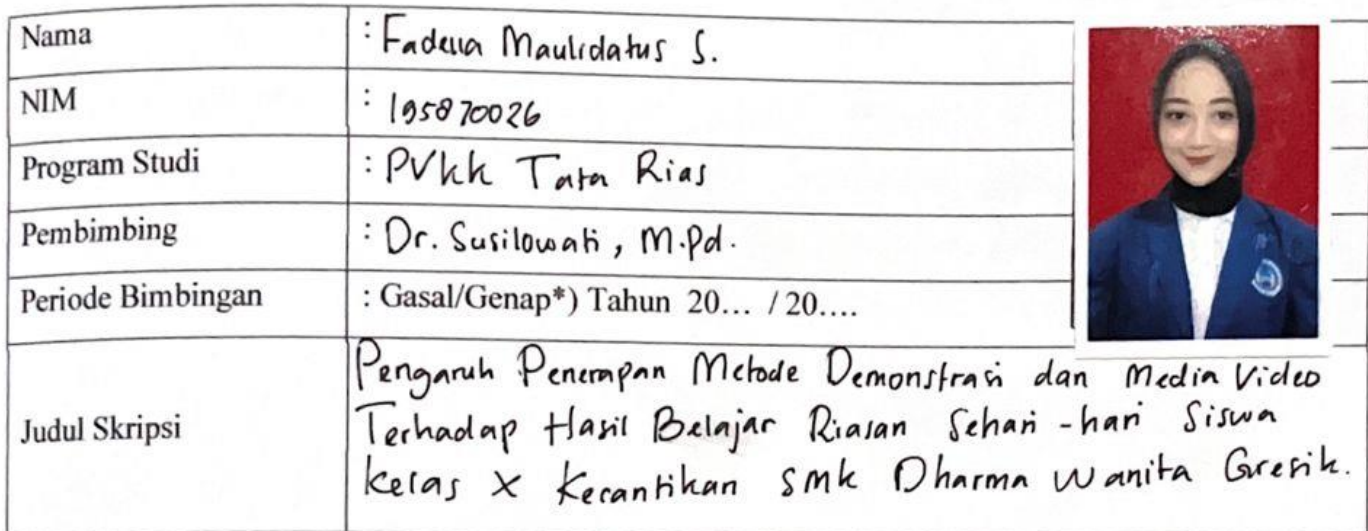 Nama : Fadella Maulidatus S.
NIM : 195870026
Program Studi : PVKK Tata Rias
Pembimbing : Dr. Susilowati, M.Pd.
Periode Bimbingan : Gasal/Genap*) Tahun 20... / 20....
Pengaruh Penerapan Metode Demonstrasi dan Media Video
Judul Skripsi Terhadap Hasil Belajar Riasan Sehari-hari Siswa
Kelas X Kecantikan SMK Dharma Wanita Gresik.